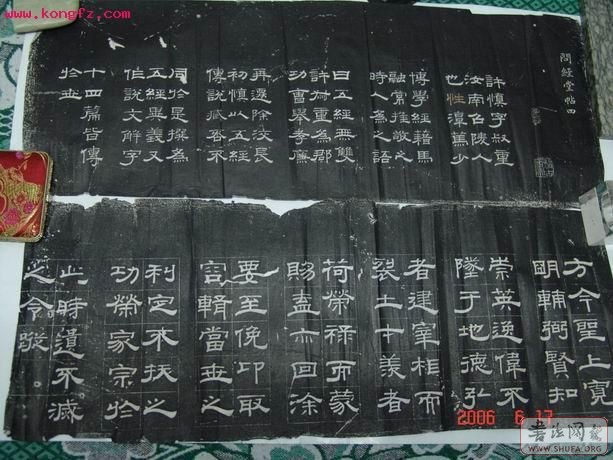 www.kongfz.com
問經堂帖四
許慎字叔重
汝南召陵人
也性淳篤少
博學經籍馬
融常推敬之
時人為之語
曰五經無雙
許叔重為郡
功曹舉孝廉
再遷除洨長
初慎以五經
傳說臧否不
同於是撰為
五經異義又
作說文解字
十四篇皆傳
於世
方今聖上寬
明輔弼賢知
崇英逸偉不
墜于地德弘
者建宰相而
裂土才羨者
荷榮祿而蒙
賜盍亦回塗
要至俛卬取
容輯當世之
利定不拔之
功榮家宗於
此時遺不滅
之令蹤
2006 6 17
書法网
WWW.SHUFA.ORG